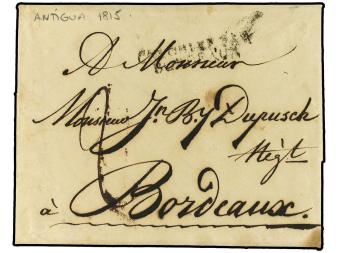 ANTIGUA 1815
A Monsieur
Monsieur Jn. By Dupusch
Négt
à Bordeaux.